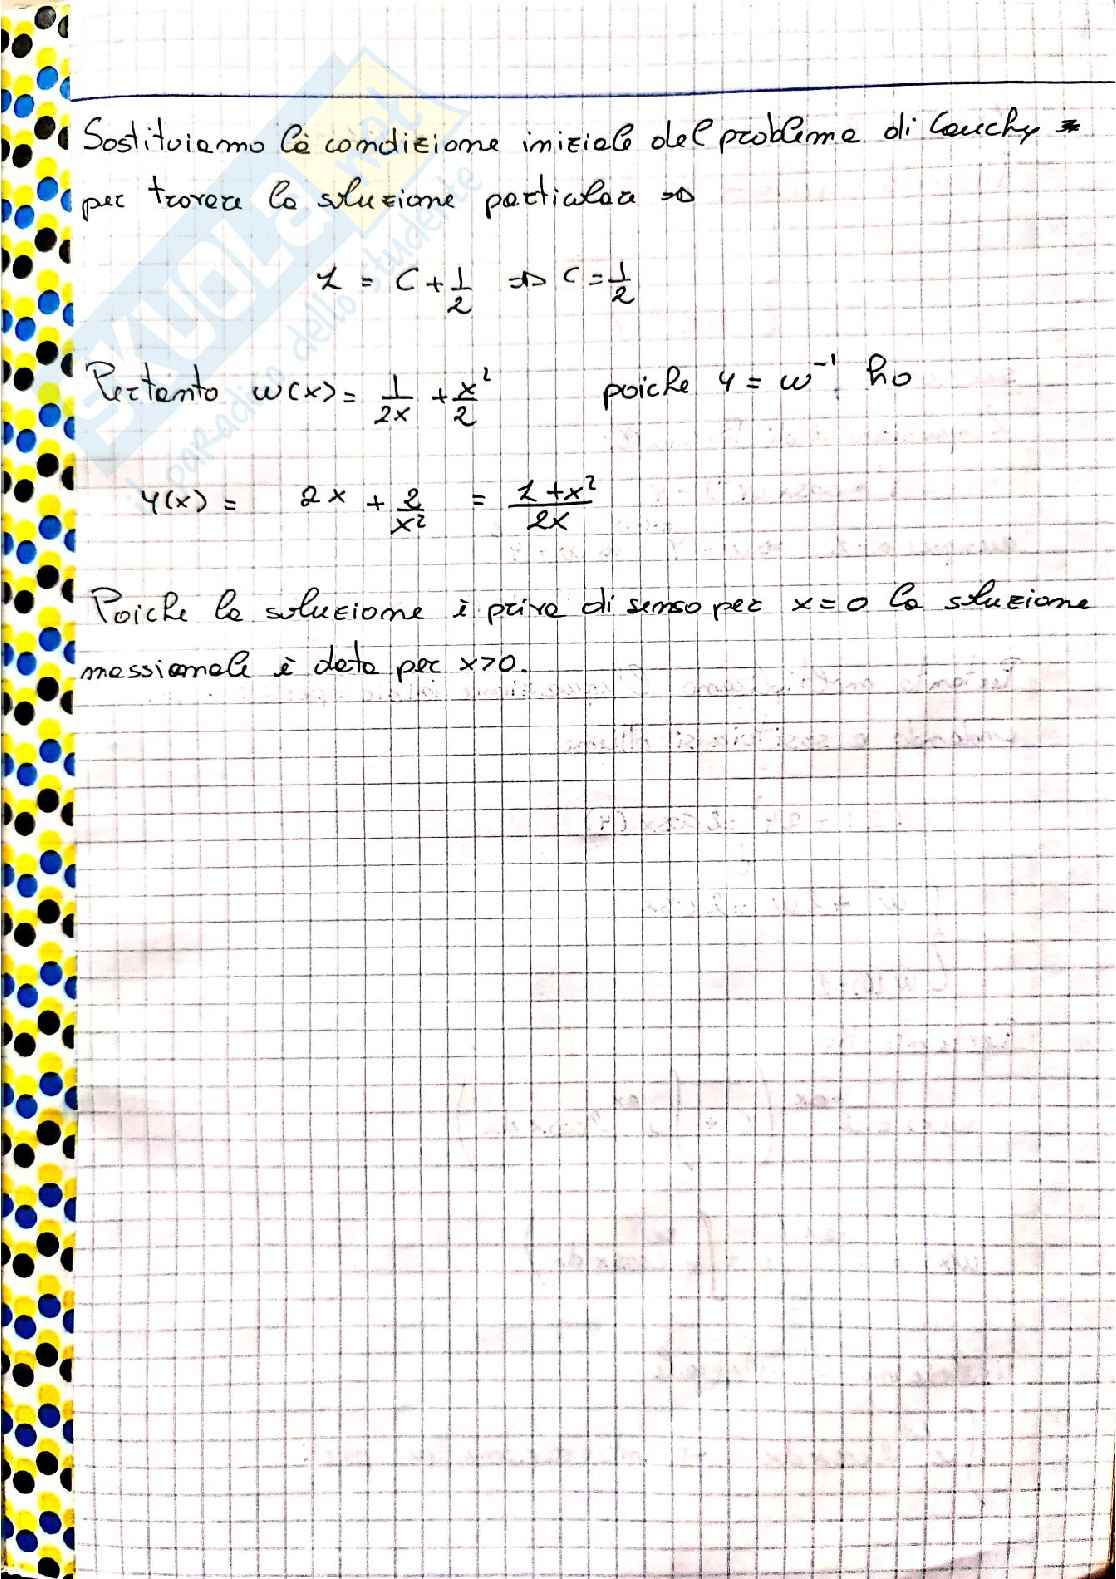 Sostituiamo la condizione iniziale del problema di Cauchy
per trovare la soluzione particolare =>
1 = C + 1/2 => C = 1/2
Pertanto w(x) = 1/2x + x²/2 poiche y = w⁻¹ ho
y(x) = 2x + 2/x² = 1+x²/2x
Poiche la soluzione è priva di senso per x=0 la soluzione
massimale è data per x>0.
SKUOLA.net
il paradiso dello studente